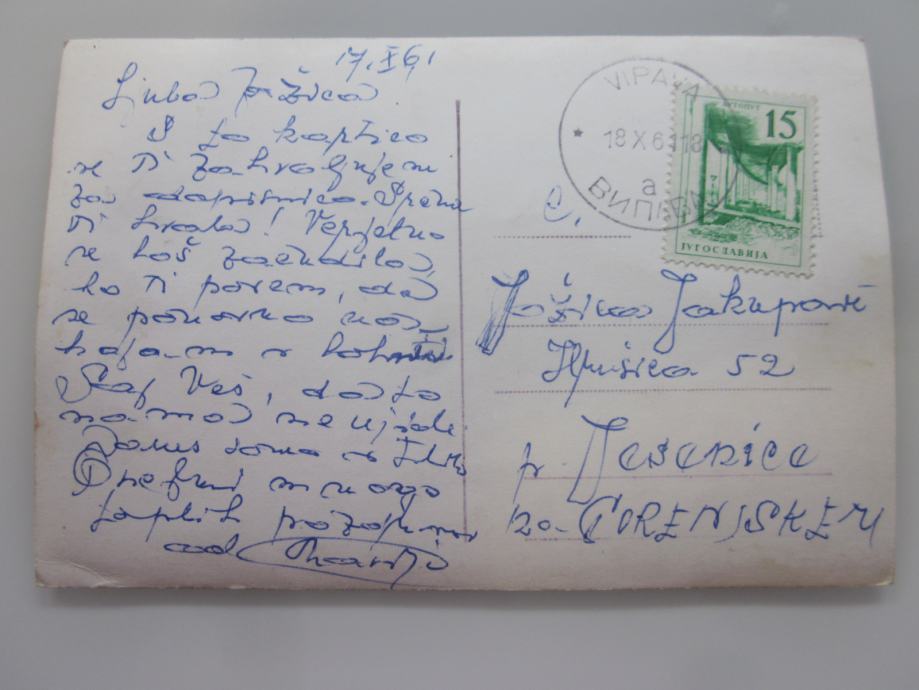 17. X 61
Ljuba Jožica.
S to kartico
se Ti zahvaljujem
za dopisnico. Srčna
Ti hvala! Verjetno
se boš začudila,
ko Ti povem, da
se ponovno
nahajam v
Saj Veš, da to
nama ne uide.
Danes smo v
Prejmi mnogo
toplih pozdravov
od
VIPAVA
18 X 61 18
a
ВИПАВА
15
ЈУГОСЛАВИЈА
Jožica Jakupović
Hrušica 52
p. Jesenice
na GORENJSKEM